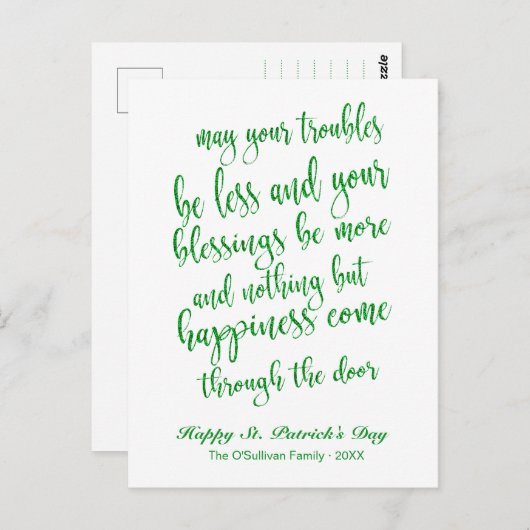 may your troubles
be less and your
blessings be more
and nothing but
happiness come
through the door
Happy St. Patrick's Day
The O'Sullivan Family · 20XX